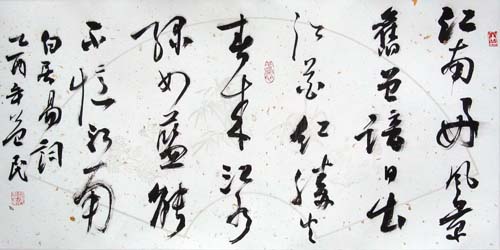 江南好風景
舊曾諳日出
江花紅勝火
春來江水
綠如藍能
不憶江南
白居易詞
乙酉年益民